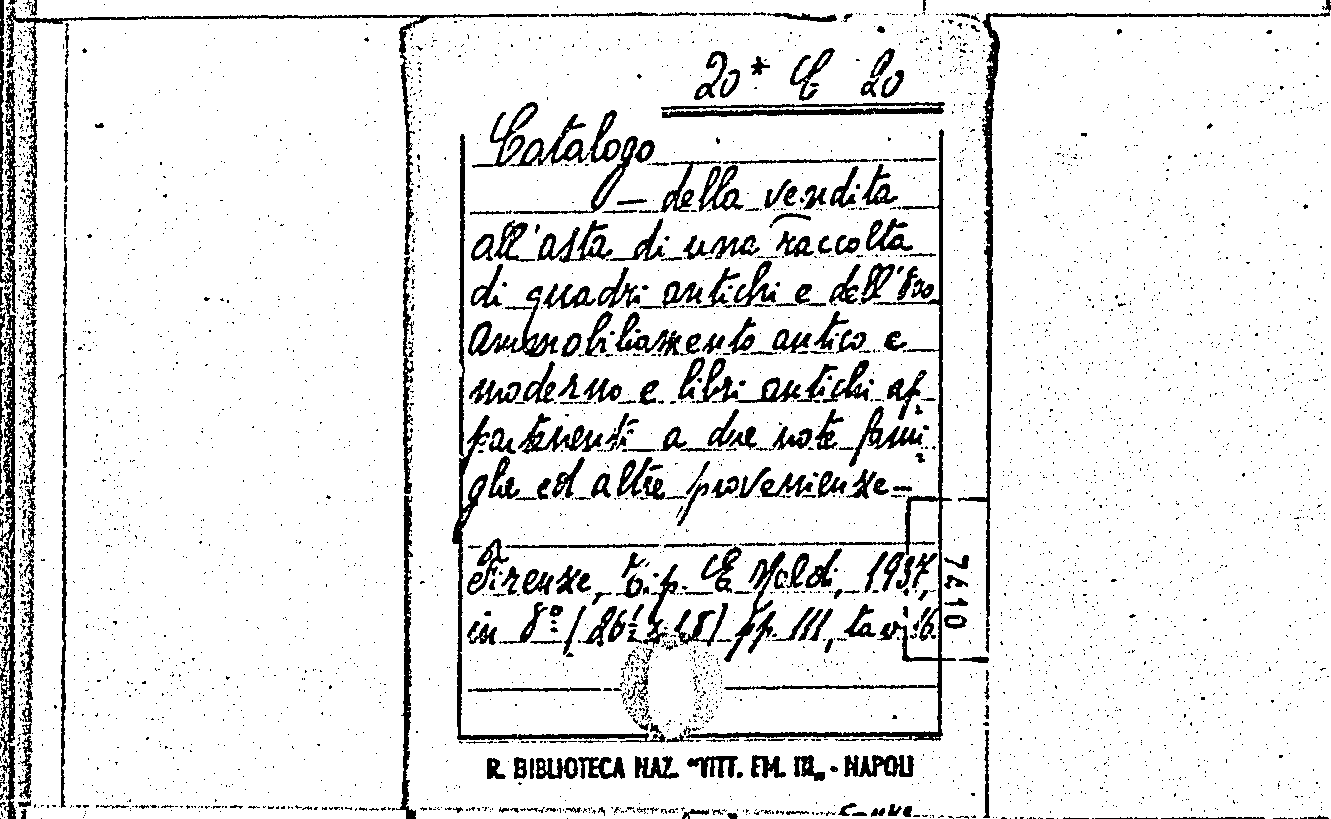 20* C 20
Catalogo
— della vendita
all'asta di una raccolta
di quadri antichi e dell'800
ammobiliamento antico e
moderno e libri antichi ap
partenenti a due note fami
glie ed altre provenienze —
Firenze, tip. E. 1937,
in 8º ( 26 x 18) pp. 111, tav. 16
7410
R. BIBLIOTECA NAZ. "VITT. EM. III„ - NAPOLI